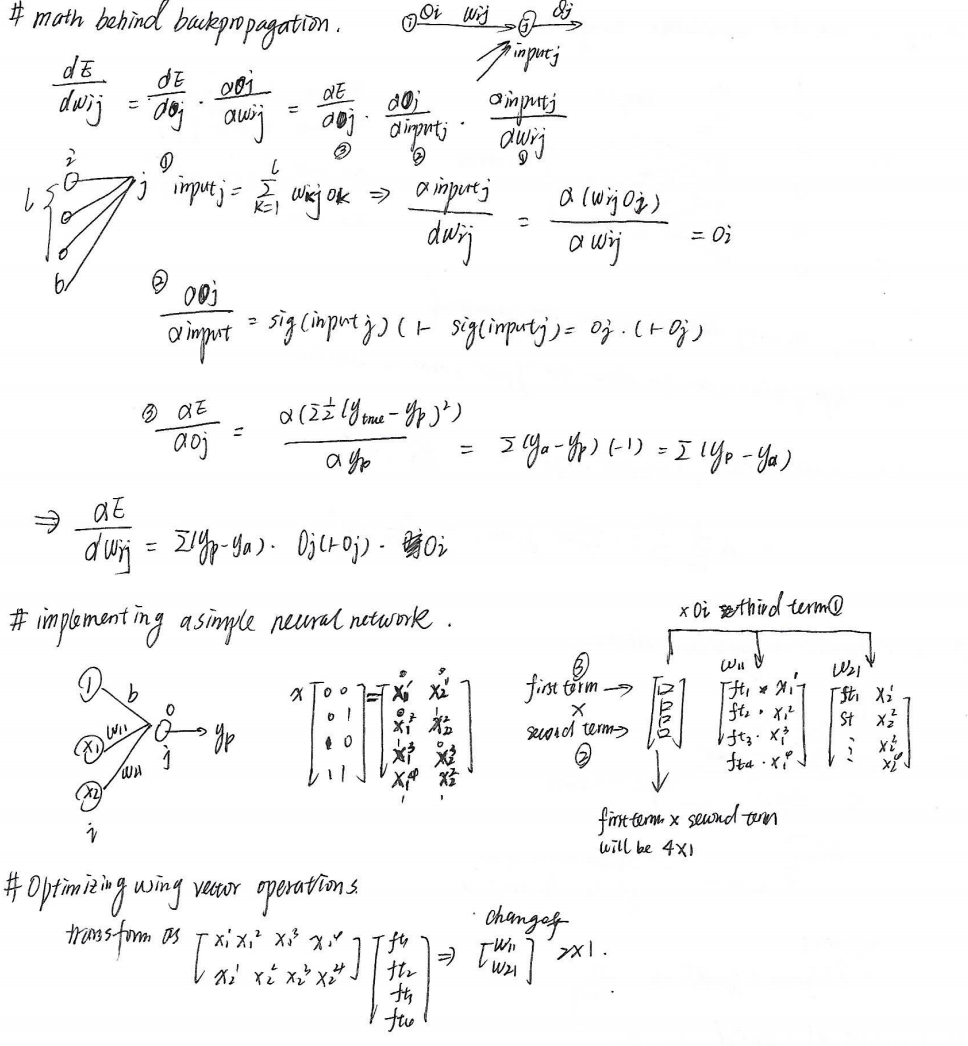 # math behind backpropagation.
i Oi wij j Oj
input j
dE/dwij = dE/dOj · dOj/dwij = dE/dOj · dOj/dinputj · dinputj/dwij
③ ② ①
i l j b ① inputj = Σ_{k=1}^{l} wkj ok ⇒ dinputj/dwij = d(wij Oi)/dwij = Oi
② dOj/dinput = sig(inputj)(1- sig(inputj) = Oj · (1-Oj)
③ dE/dOj = d(Σ½(y_true - yp)²)/dyp = Σ(ya-yp)(-1) = Σ(yp-ya)
⇒ dE/dwij = Σ(yp-ya) · Oj(1-Oj) · Oi
# implementing a simple neural network.
x Oi third term①
1 b
x1 w11
x2 w21
i
0
j → yp
x [0 0
0 1
1 0
1 1] =
③
first term →
x
second term →
②
w11
[ft1 * x1^1
ft2 · x1^2
ft3 · x1^3
ft4 · x1^4]
w21
[ft1 x2^1
st x2^2
⋮ x2^3
x2^4]
first term x second term
will be 4x1
# Optimizing using vector operations.
transform as [x1^1 x1^2 x1^3 x1^4
x2^1 x2^2 x2^3 x2^4] [ft1
ft2
ft3
ft4] ⇒
change of
[w11
w21] 2x1.